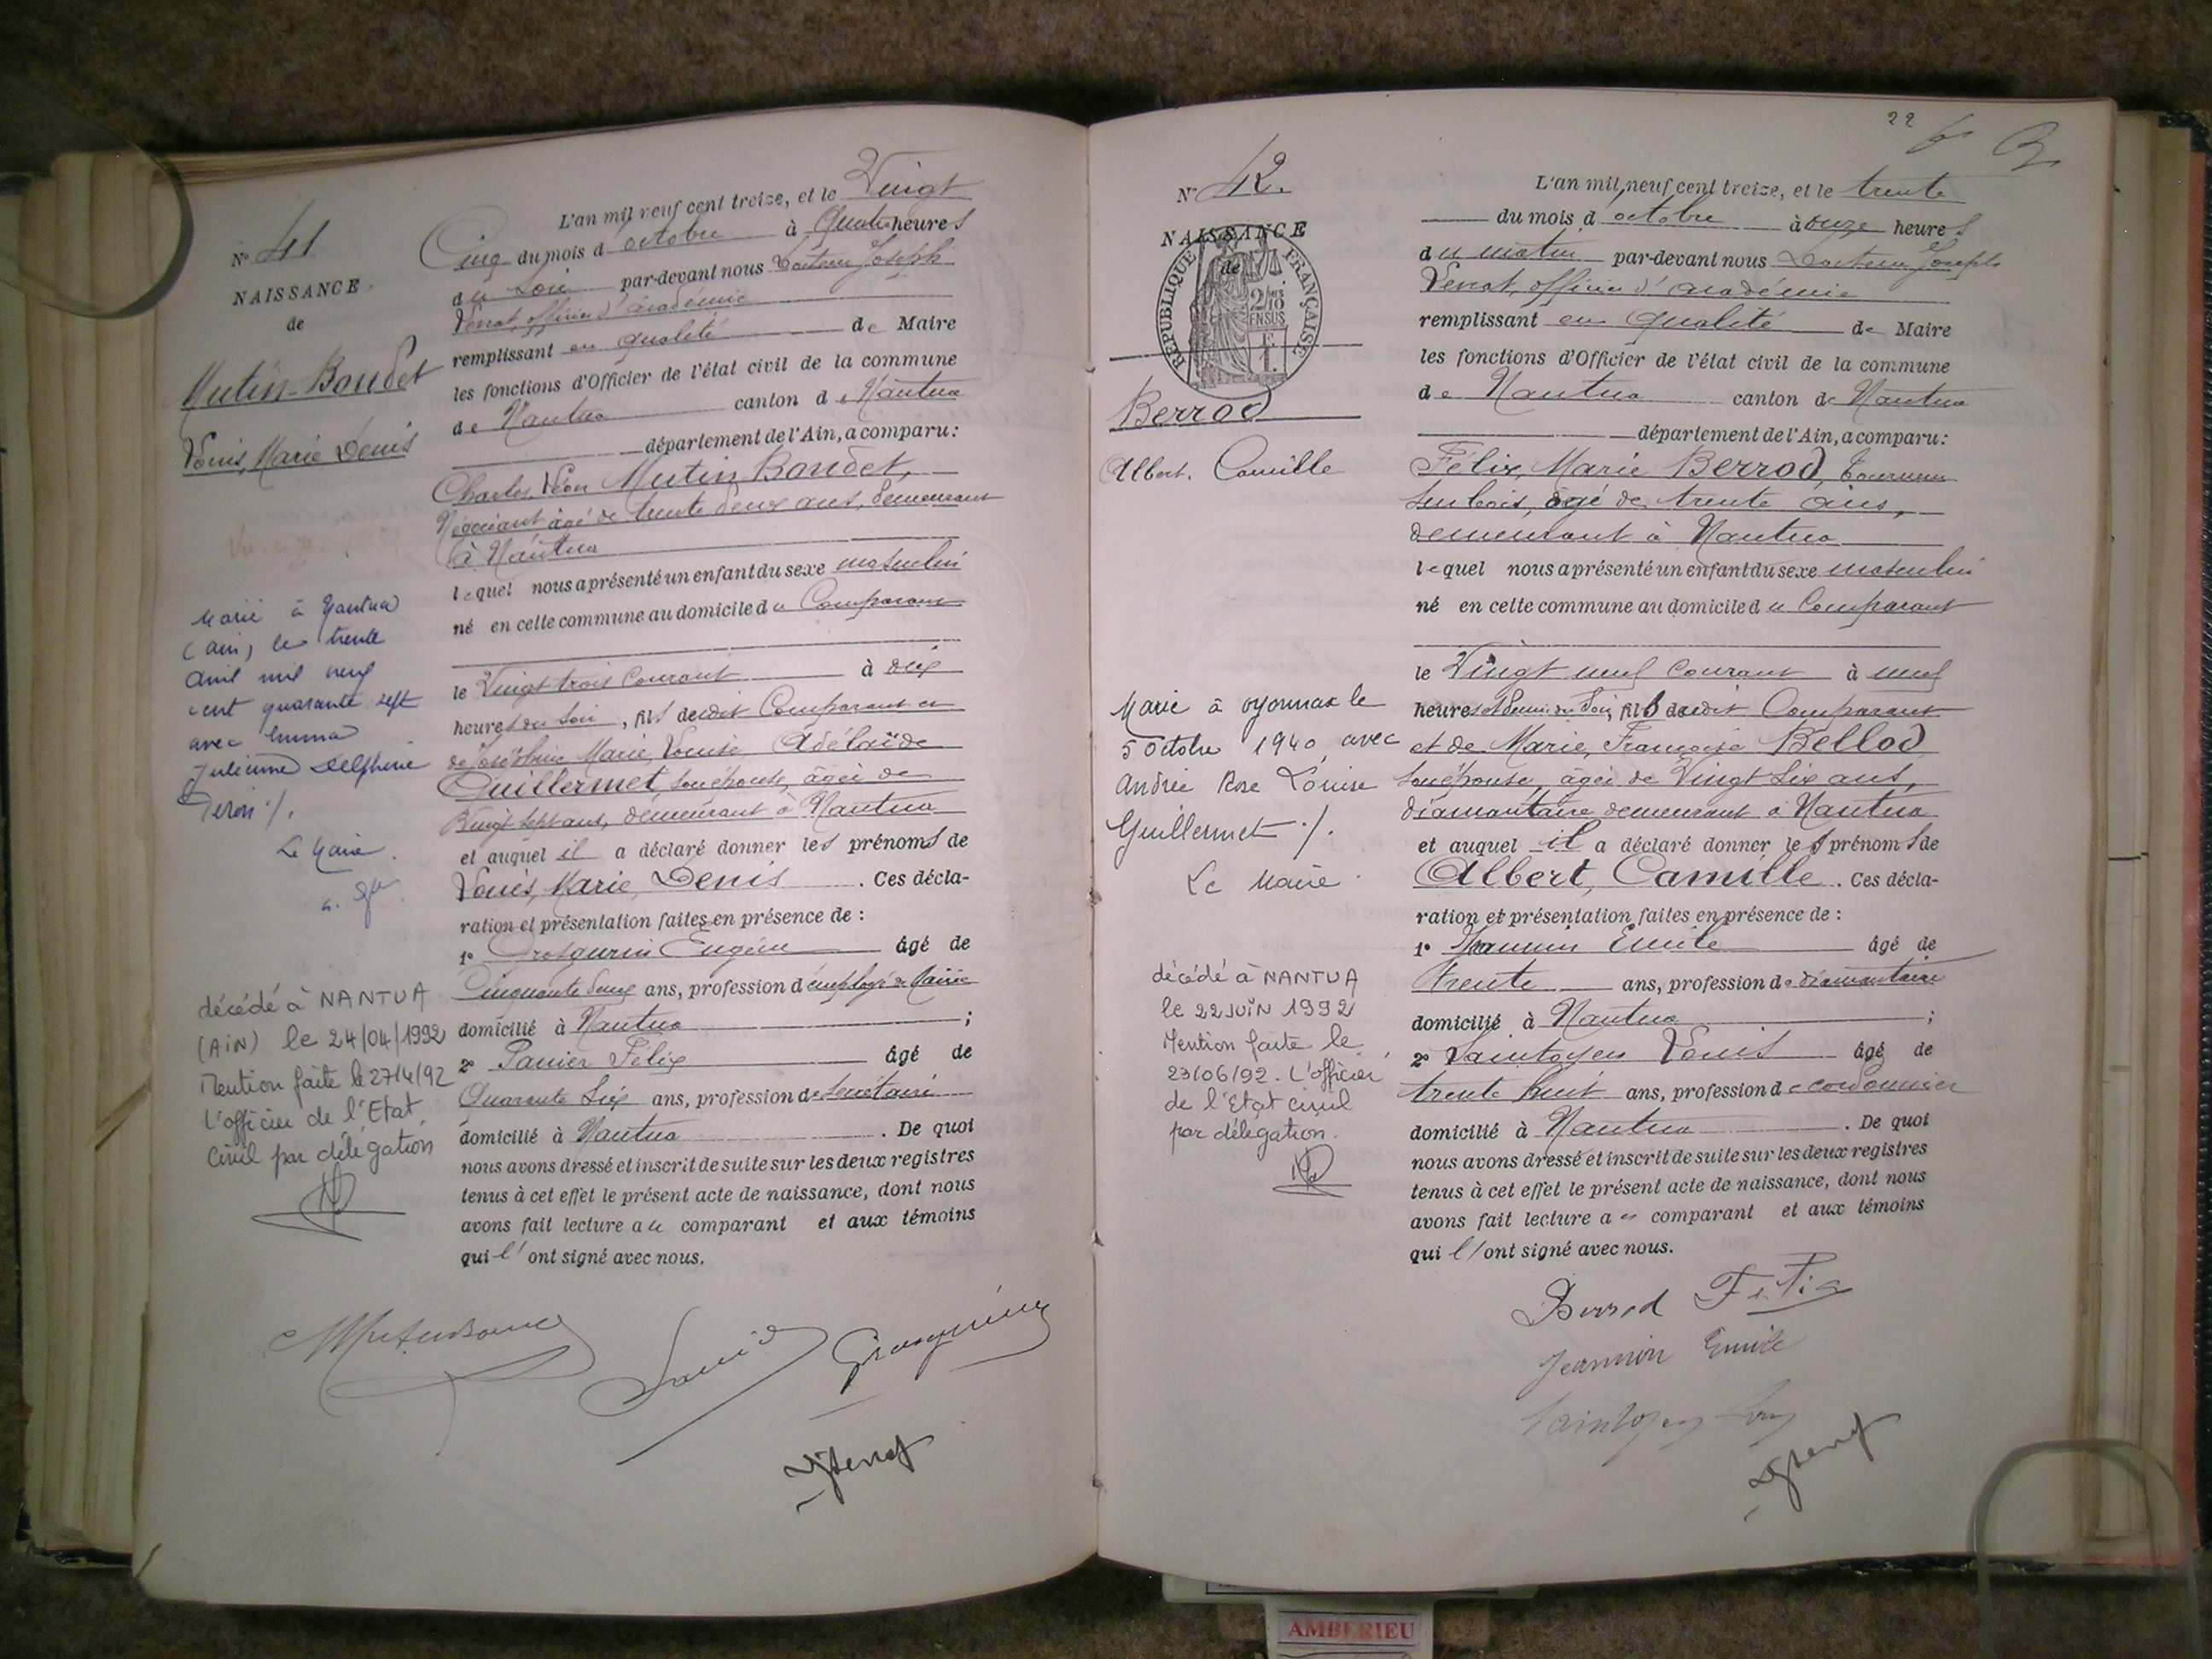 N° 41
NAISSANCE
de
Mutin-Boudet
Louis, Marie Denis
Marié à Nantua
(Ain) le trente
avril mil neuf
cent quarante sept
avec Emma
Julienne Delphine
Le Maire
décédé à NANTUA
(AIN) le 24/04/1992
Mention faite le 27/4/92
L'officier de l'Etat
Civil par délégation
L'an mil neuf cent treize, et le Vingt
Cinq du mois d'octobre à Quatre heures
du Soir par-devant nous Docteur Joseph
Venat, officier d'académie
remplissant en qualité de Maire
les fonctions d'Officier de l'état civil de la commune
de Nantua canton de Nantua
département de l'Ain, a comparu:
Charles Léon Mutin Boudet,
Négociant âgé de trente deux ans, demeurant
à Nantua
lequel nous a présenté un enfant du sexe masculin
né en cette commune au domicile du Comparant
le Vingt trois Courant à dix
heures du soir, fils dudit Comparant et
de Joséphine Marie, Louise, Adélaïde
Guillermet, son épouse, âgée de
Vingt sept ans, demeurant à Nantua
et auquel il a déclaré donner les prénoms de
Louis, Marie, Denis. Ces décla-
ration et présentation faites en présence de :
1° Grosgurin Eugène âgé de
Cinquante deux ans, profession d'employé de Mairie
domicilié à Nantua ;
2° Savier Félix âgé de
Quarante Six ans, profession de Secrétaire
domicilié à Nantua. De quoi
nous avons dressé et inscrit de suite sur les deux registres
tenus à cet effet le présent acte de naissance, dont nous
avons fait lecture au comparant et aux témoins
qui l'ont signé avec nous.
Grosgurin
22
N° 42.
NAISSANCE
de
RÉPUBLIQUE FRANÇAISE
2/10 EN SUS
1 F.
Berrod
Albert. Camille
Marié à Oyonnax le
5 Octobre 1940 avec
Andrée Rose Louise
Guillermet ./.
Le Maire
décédé à NANTUA
le 22 JUIN 1992
Mention faite le
23/06/92. L'officier
de l'Etat civil
par délégation.
L'an mil neuf cent treize, et le trente
du mois d'octobre à onze heures
du matin par-devant nous Docteur Joseph
Venat, officier d'académie
remplissant en qualité de Maire
les fonctions d'Officier de l'état civil de la commune
de Nantua canton de Nantua
département de l'Ain, a comparu:
Félix, Marie Berrod, tourneur
sur bois, âgé de trente ans,
demeurant à Nantua
lequel nous a présenté un enfant du sexe masculin
né en cette commune au domicile du Comparant
le Vingt neuf Courant à neuf
heures et demie du soir, fils dudit Comparant
et de Marie, Françoise Bellod
son épouse, âgée de Vingt Six ans,
diamantaire demeurant à Nantua
et auquel il a déclaré donner les prénoms de
Albert, Camille. Ces décla-
ration et présentation faites en présence de :
1° Jeannin Emile âgé de
trente ans, profession de diamantaire
domicilié à Nantua ;
2° Saintoyen Louis âgé de
trente huit ans, profession de cordonnier
domicilié à Nantua. De quoi
nous avons dressé et inscrit de suite sur les deux registres
tenus à cet effet le présent acte de naissance, dont nous
avons fait lecture au comparant et aux témoins
qui l'ont signé avec nous.
Berrod Félix
Jeannin Emile
Saintoyen Louis
AMBERIEU